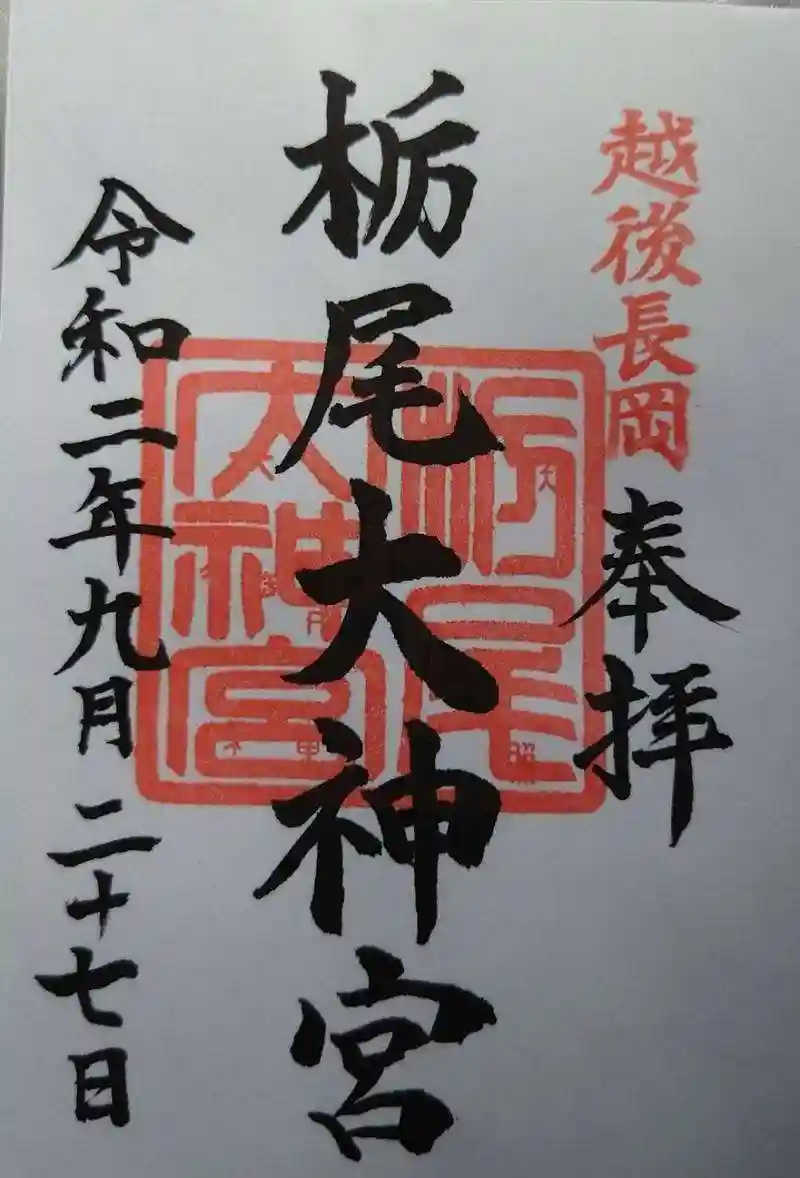 越後長岡
奉拝
栃尾大神宮
栃尾
大神宮
令和二年九月二十七日